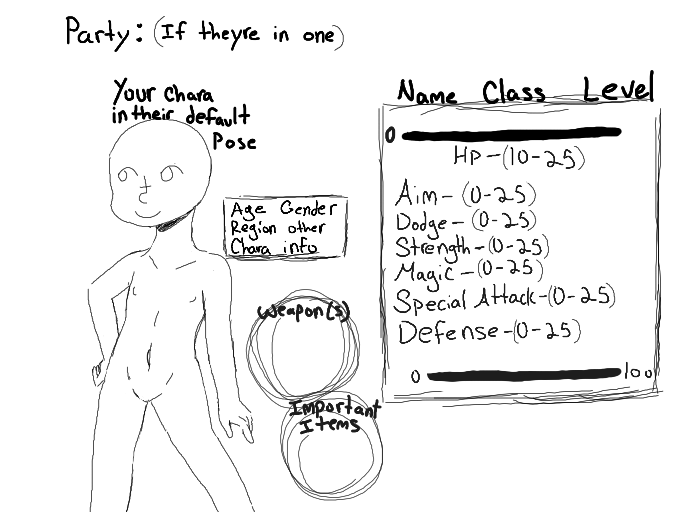 Party: (If theyre in one)
Your Chara
in their default
Pose
Age Gender
Region other
Chara info
Weapon(s)
Important
Items
Name Class Level
0
HP-(10-25)
Aim-(0-25)
Dodge-(0-25)
Strength-(0-25)
Magic-(0-25)
Special Attack-(0-25)
Defense-(0-25)
0 100